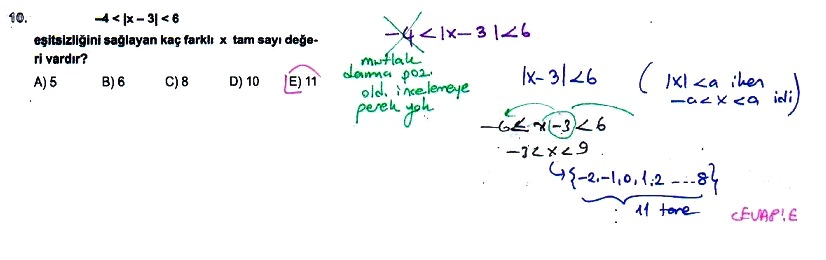 10. -4 < |x – 3| < 6
eşitsizliğini sağlayan kaç farklı x tam sayı değe-
ri vardır?
A) 5 B) 6 C) 8 D) 10 E) 11
-4 < |x-3| < 6
mutlak
daima poz.
old. incelemeye
gerek yok
|x-3| < 6 ( |x| < a iken
-a < x < a idi )
-6 < x -3 < 6
-3 < x < 9
↳ {-2,-1,0,1,2 ---- 8}
11 tane
CEVAP:E